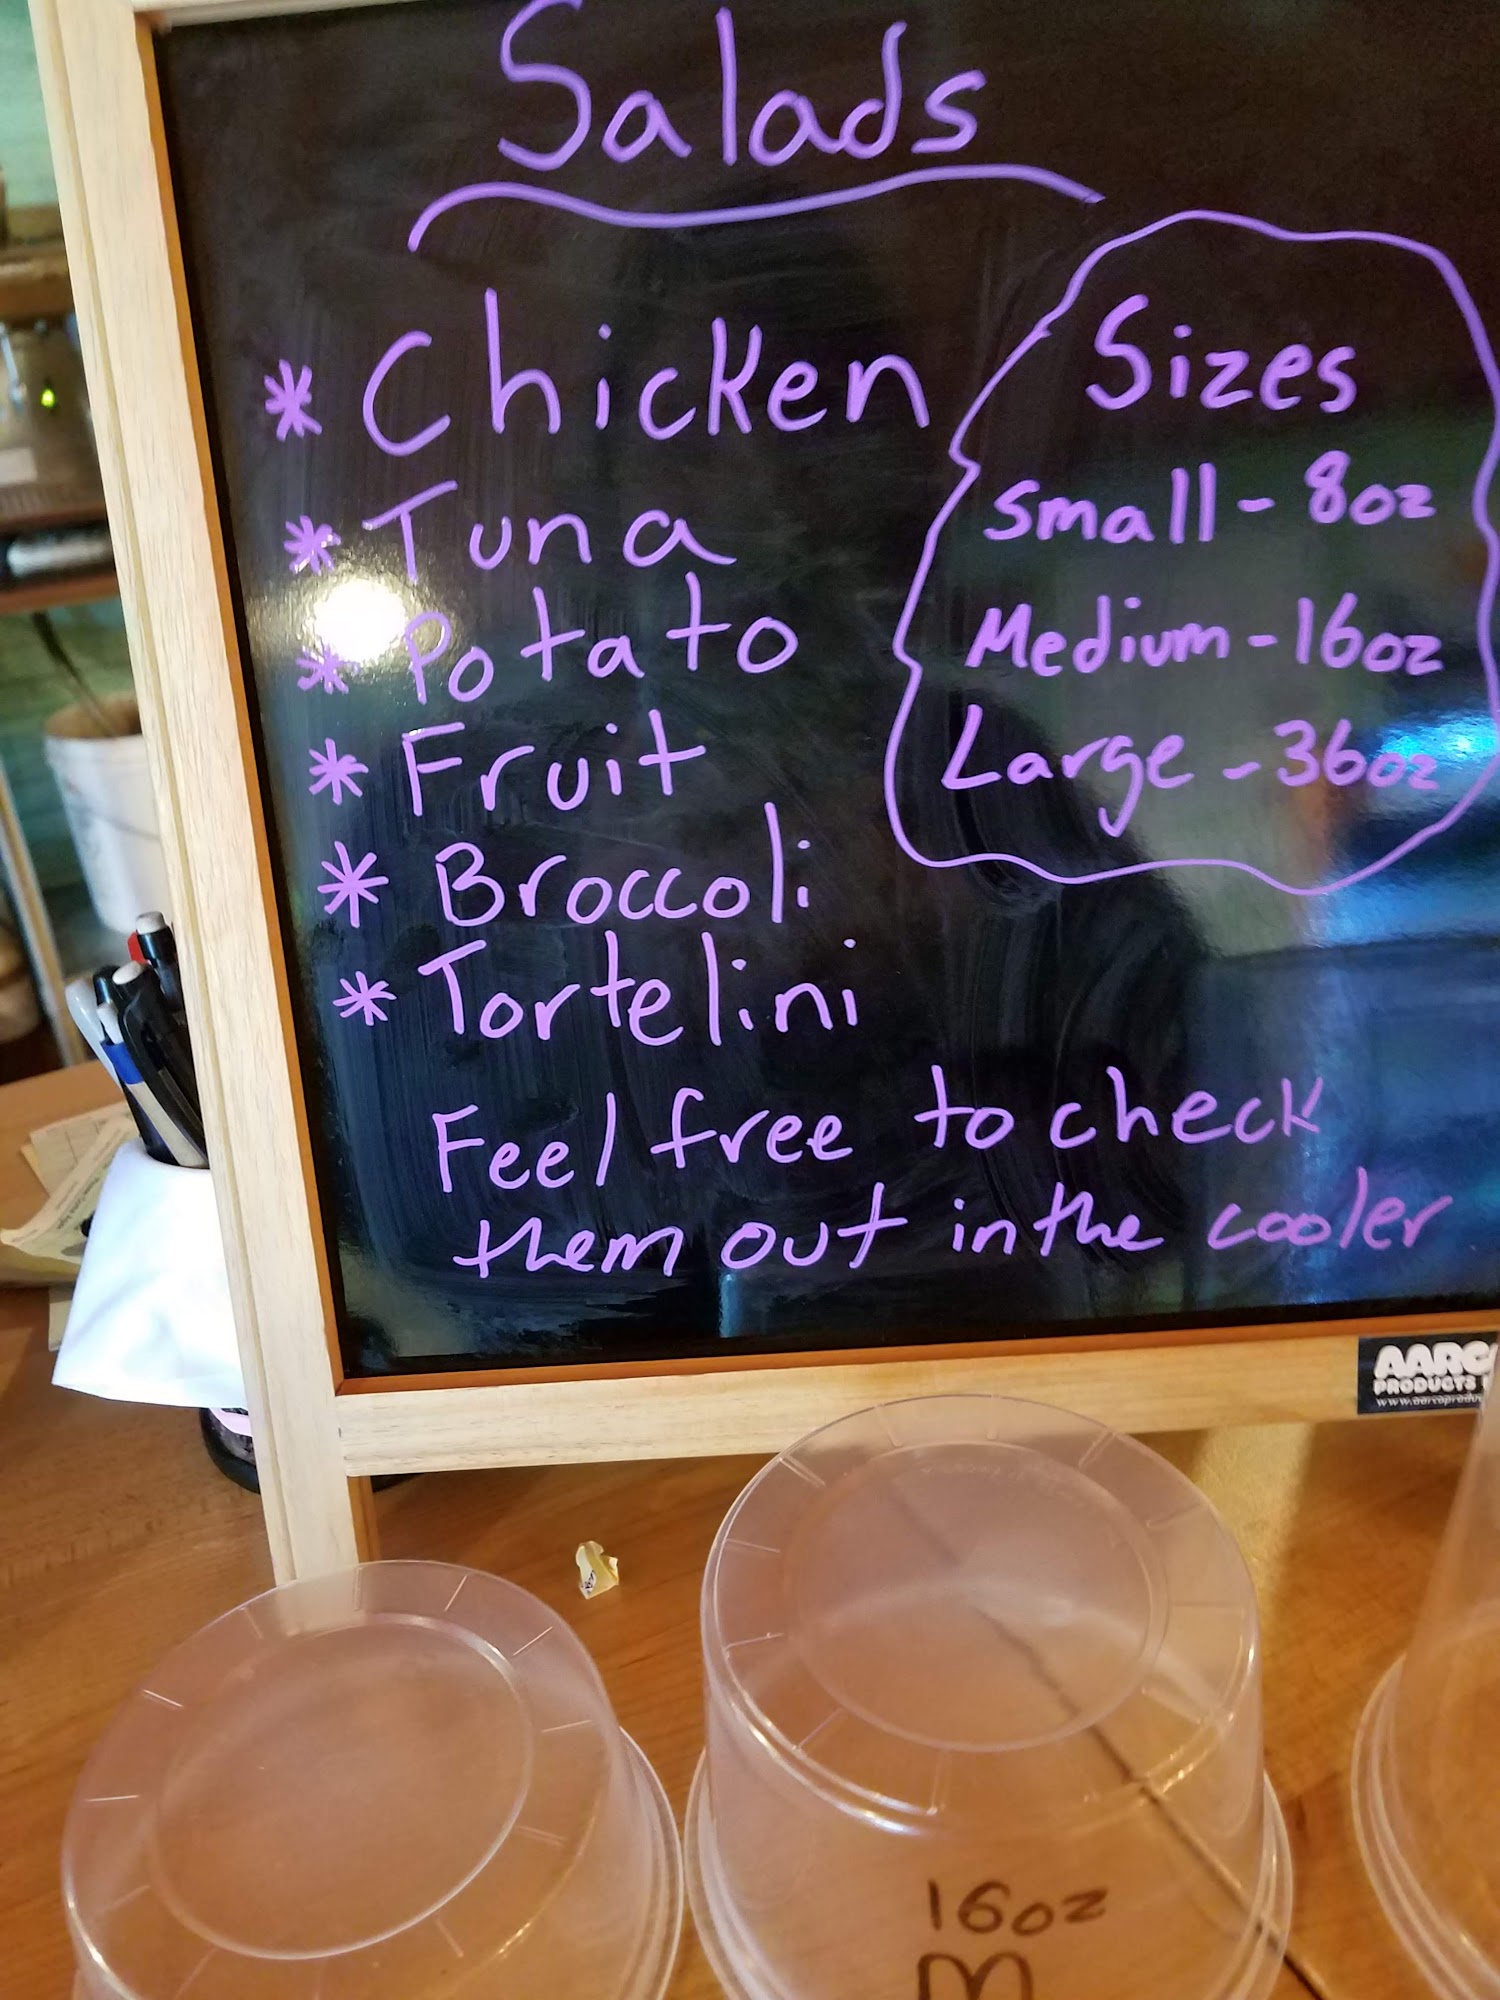 Salads
* Chicken
* Tuna
* Potato
* Fruit
* Broccoli
* Tortelini
Sizes
Small - 8oz
Medium - 16oz
Large - 36oz
Feel free to check
them out in the cooler
AARC
PRODUCTS
16oz
M